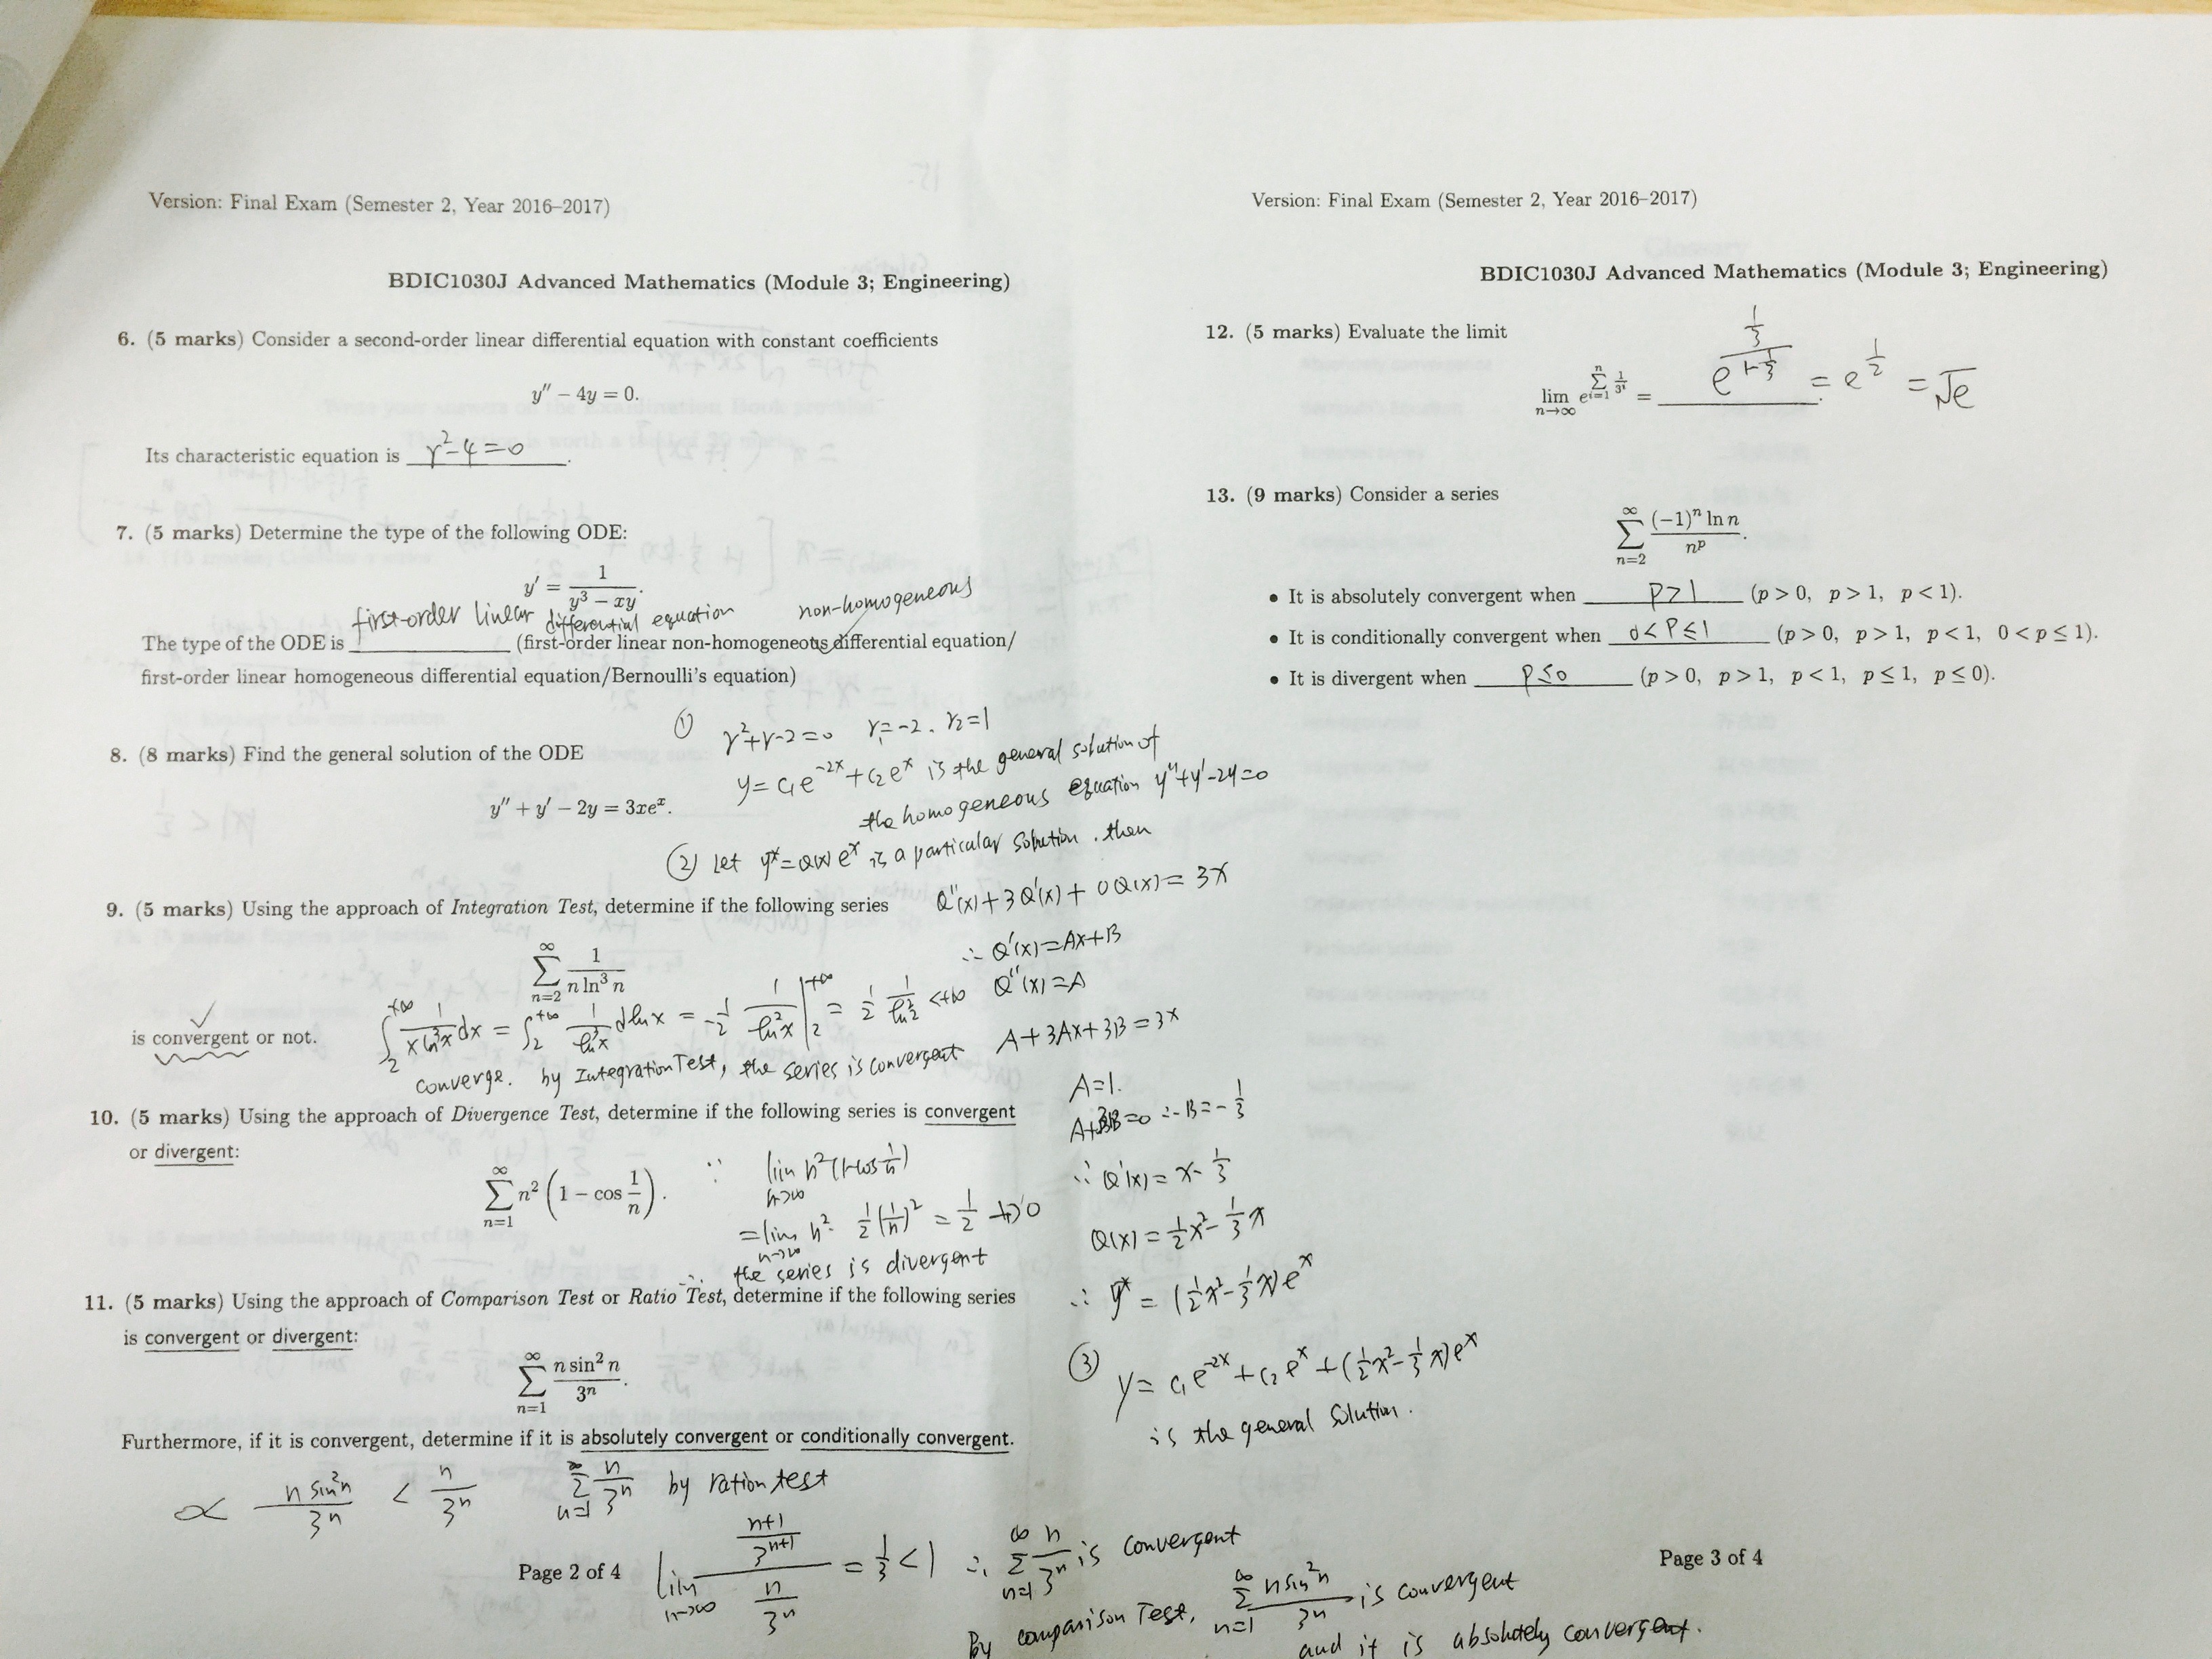 Version: Final Exam (Semester 2, Year 2016–2017)
BDIC1030J Advanced Mathematics (Module 3; Engineering)
6. (5 marks) Consider a second-order linear differential equation with constant coefficients
y″ − 4y = 0.
Its characteristic equation is r²−4=0.
7. (5 marks) Determine the type of the following ODE:
y′ = 1/(y³ − xy).
first-order linear differential equation non-homogeneous
The type of the ODE is ________ (first-order linear non-homogeneous differential equation/
first-order linear homogeneous differential equation/Bernoulli's equation)
8. (8 marks) Find the general solution of the ODE
y″ + y′ − 2y = 3xeˣ.
① r²+r−2=0 r₁=−2. r₂=1
y= c₁e^(−2x)+c₂eˣ is the general solution of
the homogeneous equation y″+y′−2y=0
② Let y*=Q(x)eˣ is a particular solution. then
Q″(x)+3Q′(x)+0Q(x)=3x
∴ Q′(x)=Ax+B
Q″(x)=A
A+3Ax+3B=3x
A=1.
A+3B=0 ∴B=−1/3
∴ Q′(x)=x−1/3
Q(x)=1/2x²−1/3x
∴ y*=(1/2x²−1/3x)eˣ
③ y= c₁e^(−2x)+c₂eˣ+(1/2x²−1/3x)eˣ
is the general solution.
9. (5 marks) Using the approach of Integration Test, determine if the following series
∑_{n=2}^{∞} 1/(n ln³ n)
is convergent or not.
∫₂^{+∞} 1/(x ln³x) dx = ∫₂^{+∞} 1/(ln³x) dlnx = −1/2 1/(ln²x) |₂^{+∞} = 1/2 1/(ln²2) <+∞
converge. by Integration Test, the series is convergent
10. (5 marks) Using the approach of Divergence Test, determine if the following series is convergent
or divergent:
∑_{n=1}^{∞} n² (1 − cos 1/n).
∵ lim_{n→∞} n²(1−cos 1/n)
=lim_{n→∞} n²· 1/2(1/n)² = 1/2 ↛0
∴ the series is divergent
11. (5 marks) Using the approach of Comparison Test or Ratio Test, determine if the following series
is convergent or divergent:
∑_{n=1}^{∞} n sin² n/3ⁿ.
Furthermore, if it is convergent, determine if it is absolutely convergent or conditionally convergent.
n sin²n/3ⁿ < n/3ⁿ ∑_{n=1}^{∞} n/3ⁿ by ration test
lim_{n→∞} ((n+1)/3^(n+1))/(n/3ⁿ) = 1/3 <1 ∴ ∑_{n=1}^{∞} n/3ⁿ is convergent
By comparison Test, ∑_{n=1}^{∞} n sin²n/3ⁿ is convergent
and it is absolutely convergent.
Page 2 of 4
Version: Final Exam (Semester 2, Year 2016–2017)
BDIC1030J Advanced Mathematics (Module 3; Engineering)
12. (5 marks) Evaluate the limit
lim_{n→∞} e^(∑_{i=1}^{n} 1/3ⁱ) = e^((1/3)/(1−1/3)) = e^(1/2) = √e
13. (9 marks) Consider a series
∑_{n=2}^{∞} (−1)ⁿ ln n/nᵖ.
• It is absolutely convergent when p>1 (p > 0, p > 1, p < 1).
• It is conditionally convergent when 0<p≤1 (p > 0, p > 1, p < 1, 0 < p ≤ 1).
• It is divergent when p≤0 (p > 0, p > 1, p < 1, p ≤ 1, p ≤ 0).
Page 3 of 4